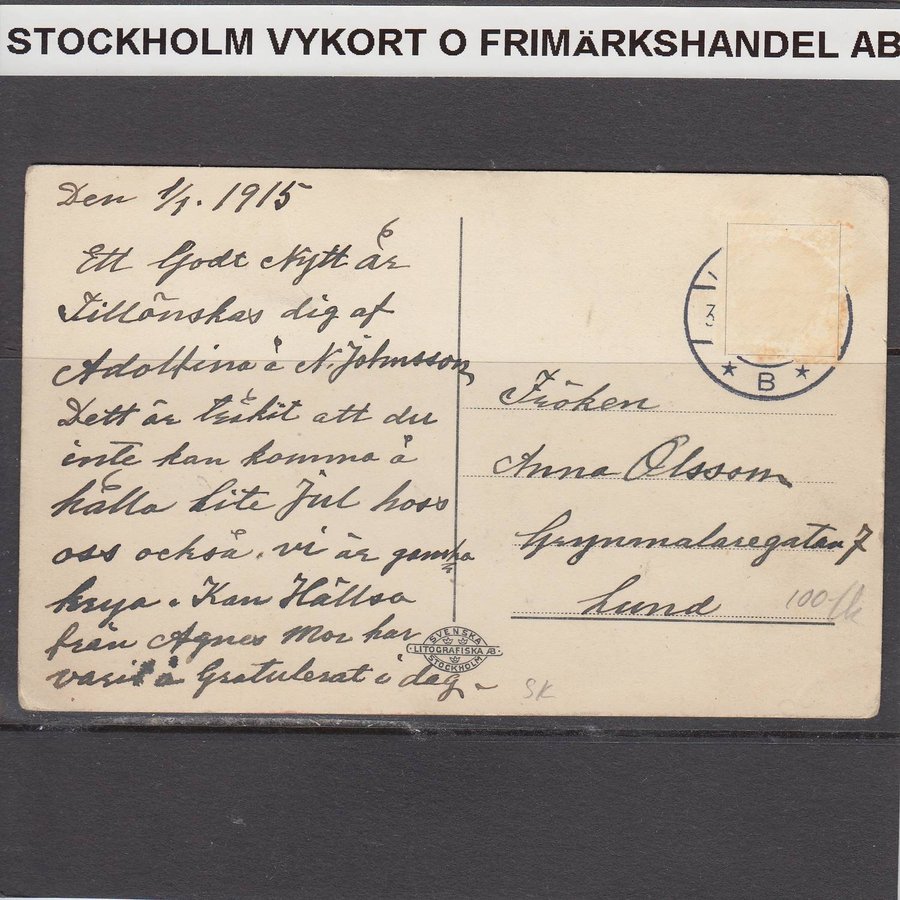 STOCKHOLM VYKORT O FRIMÄRKSHANDEL AB
Den 1/1. 1915
Ett Godt Nytt år
Tillönskas dig af
Adolfina å N. Johnsson
Dett är tråkit att du
inte kan komma å
hålla lite Jul hoss
oss också. vi är ganska
krya. Kan Hällsa
från Agnes Mor har
varit å Gratulerat i dag.
3
* B *
Fröken
Anna Olsson
Grynmalaregatan 7
Lund
100-
SVENSKA
LITOGRAFISKA AB
STOCKHOLM
SK